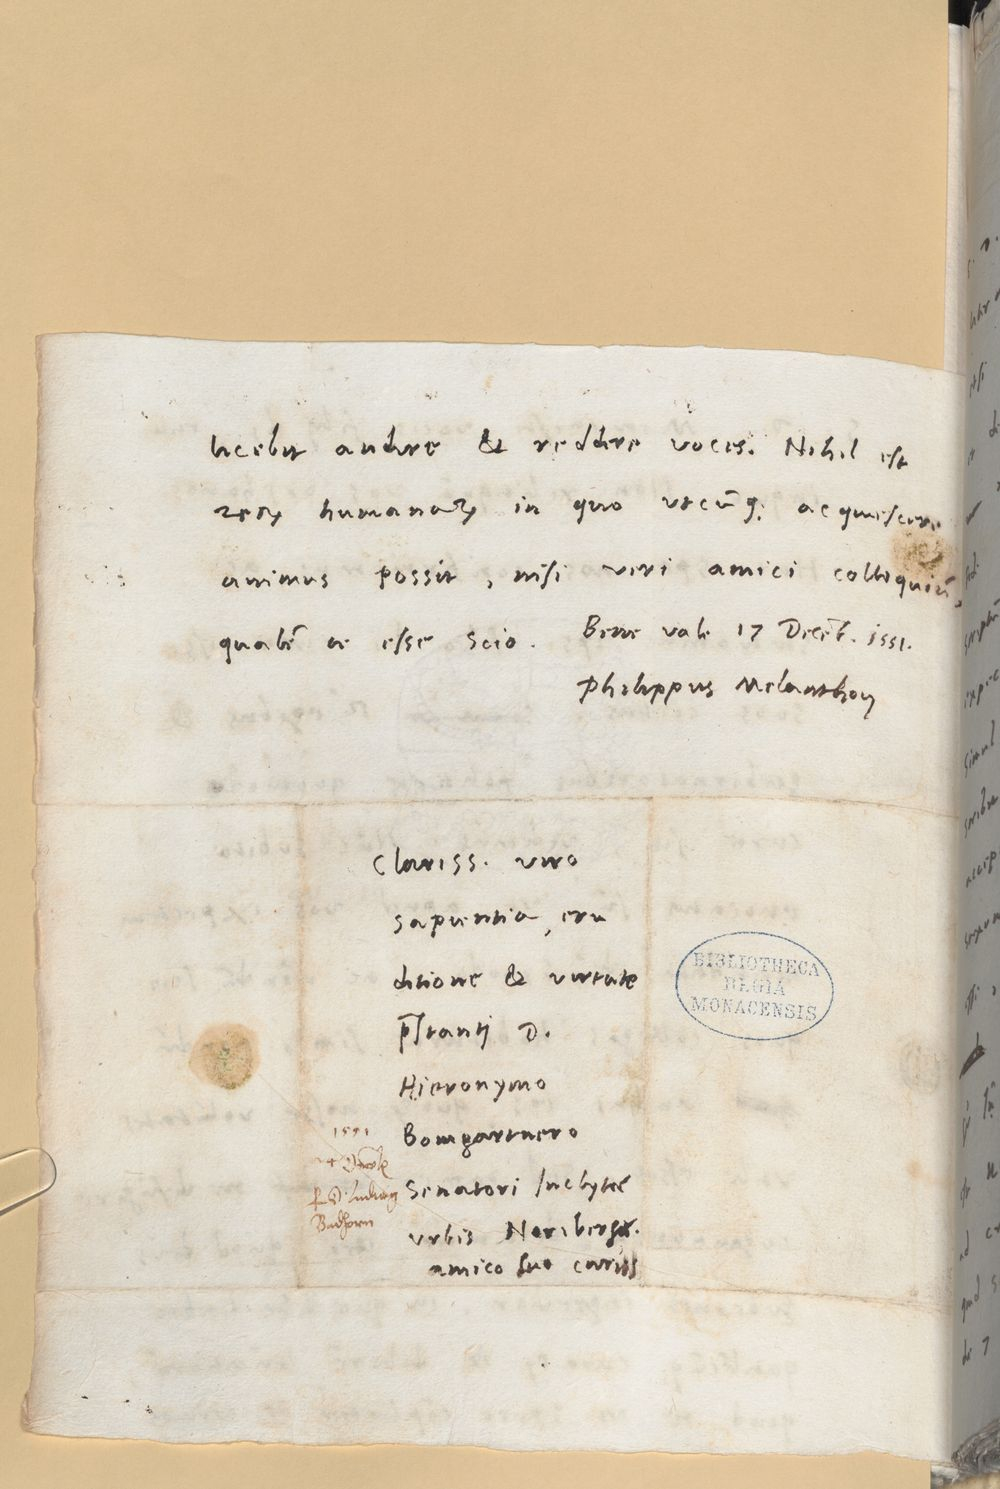 licebit audire & reddere voces. Nihil est
rerū humanarū in quo utcūq; acquiescere
animus possit, nisi veri amici colloquiū,
qualē te esse scio. Bene vale 17 Decēb. 1551.
Philippus Melanthon
Clariss. viro
sapientia, eru
ditione & virtute
p̄stanti D.
Hieronymo
Bomgartnero
Senatori Inclytae
urbis Noribergae.
amico suo cariss
BIBLIOTHECA
REGIA
MONACENSIS
1551
D. Ludwig